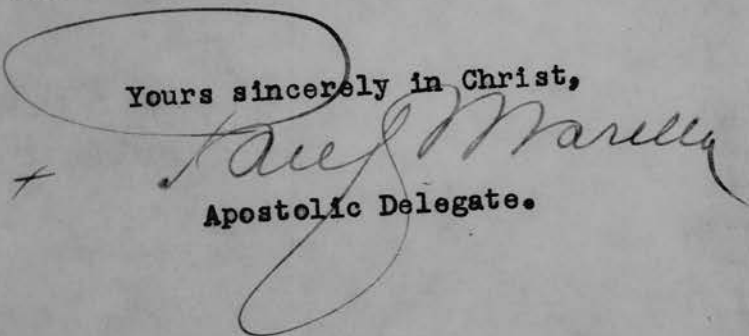 Yours sincerely in Christ,
+ Paul Marella
Apostolic Delegate.